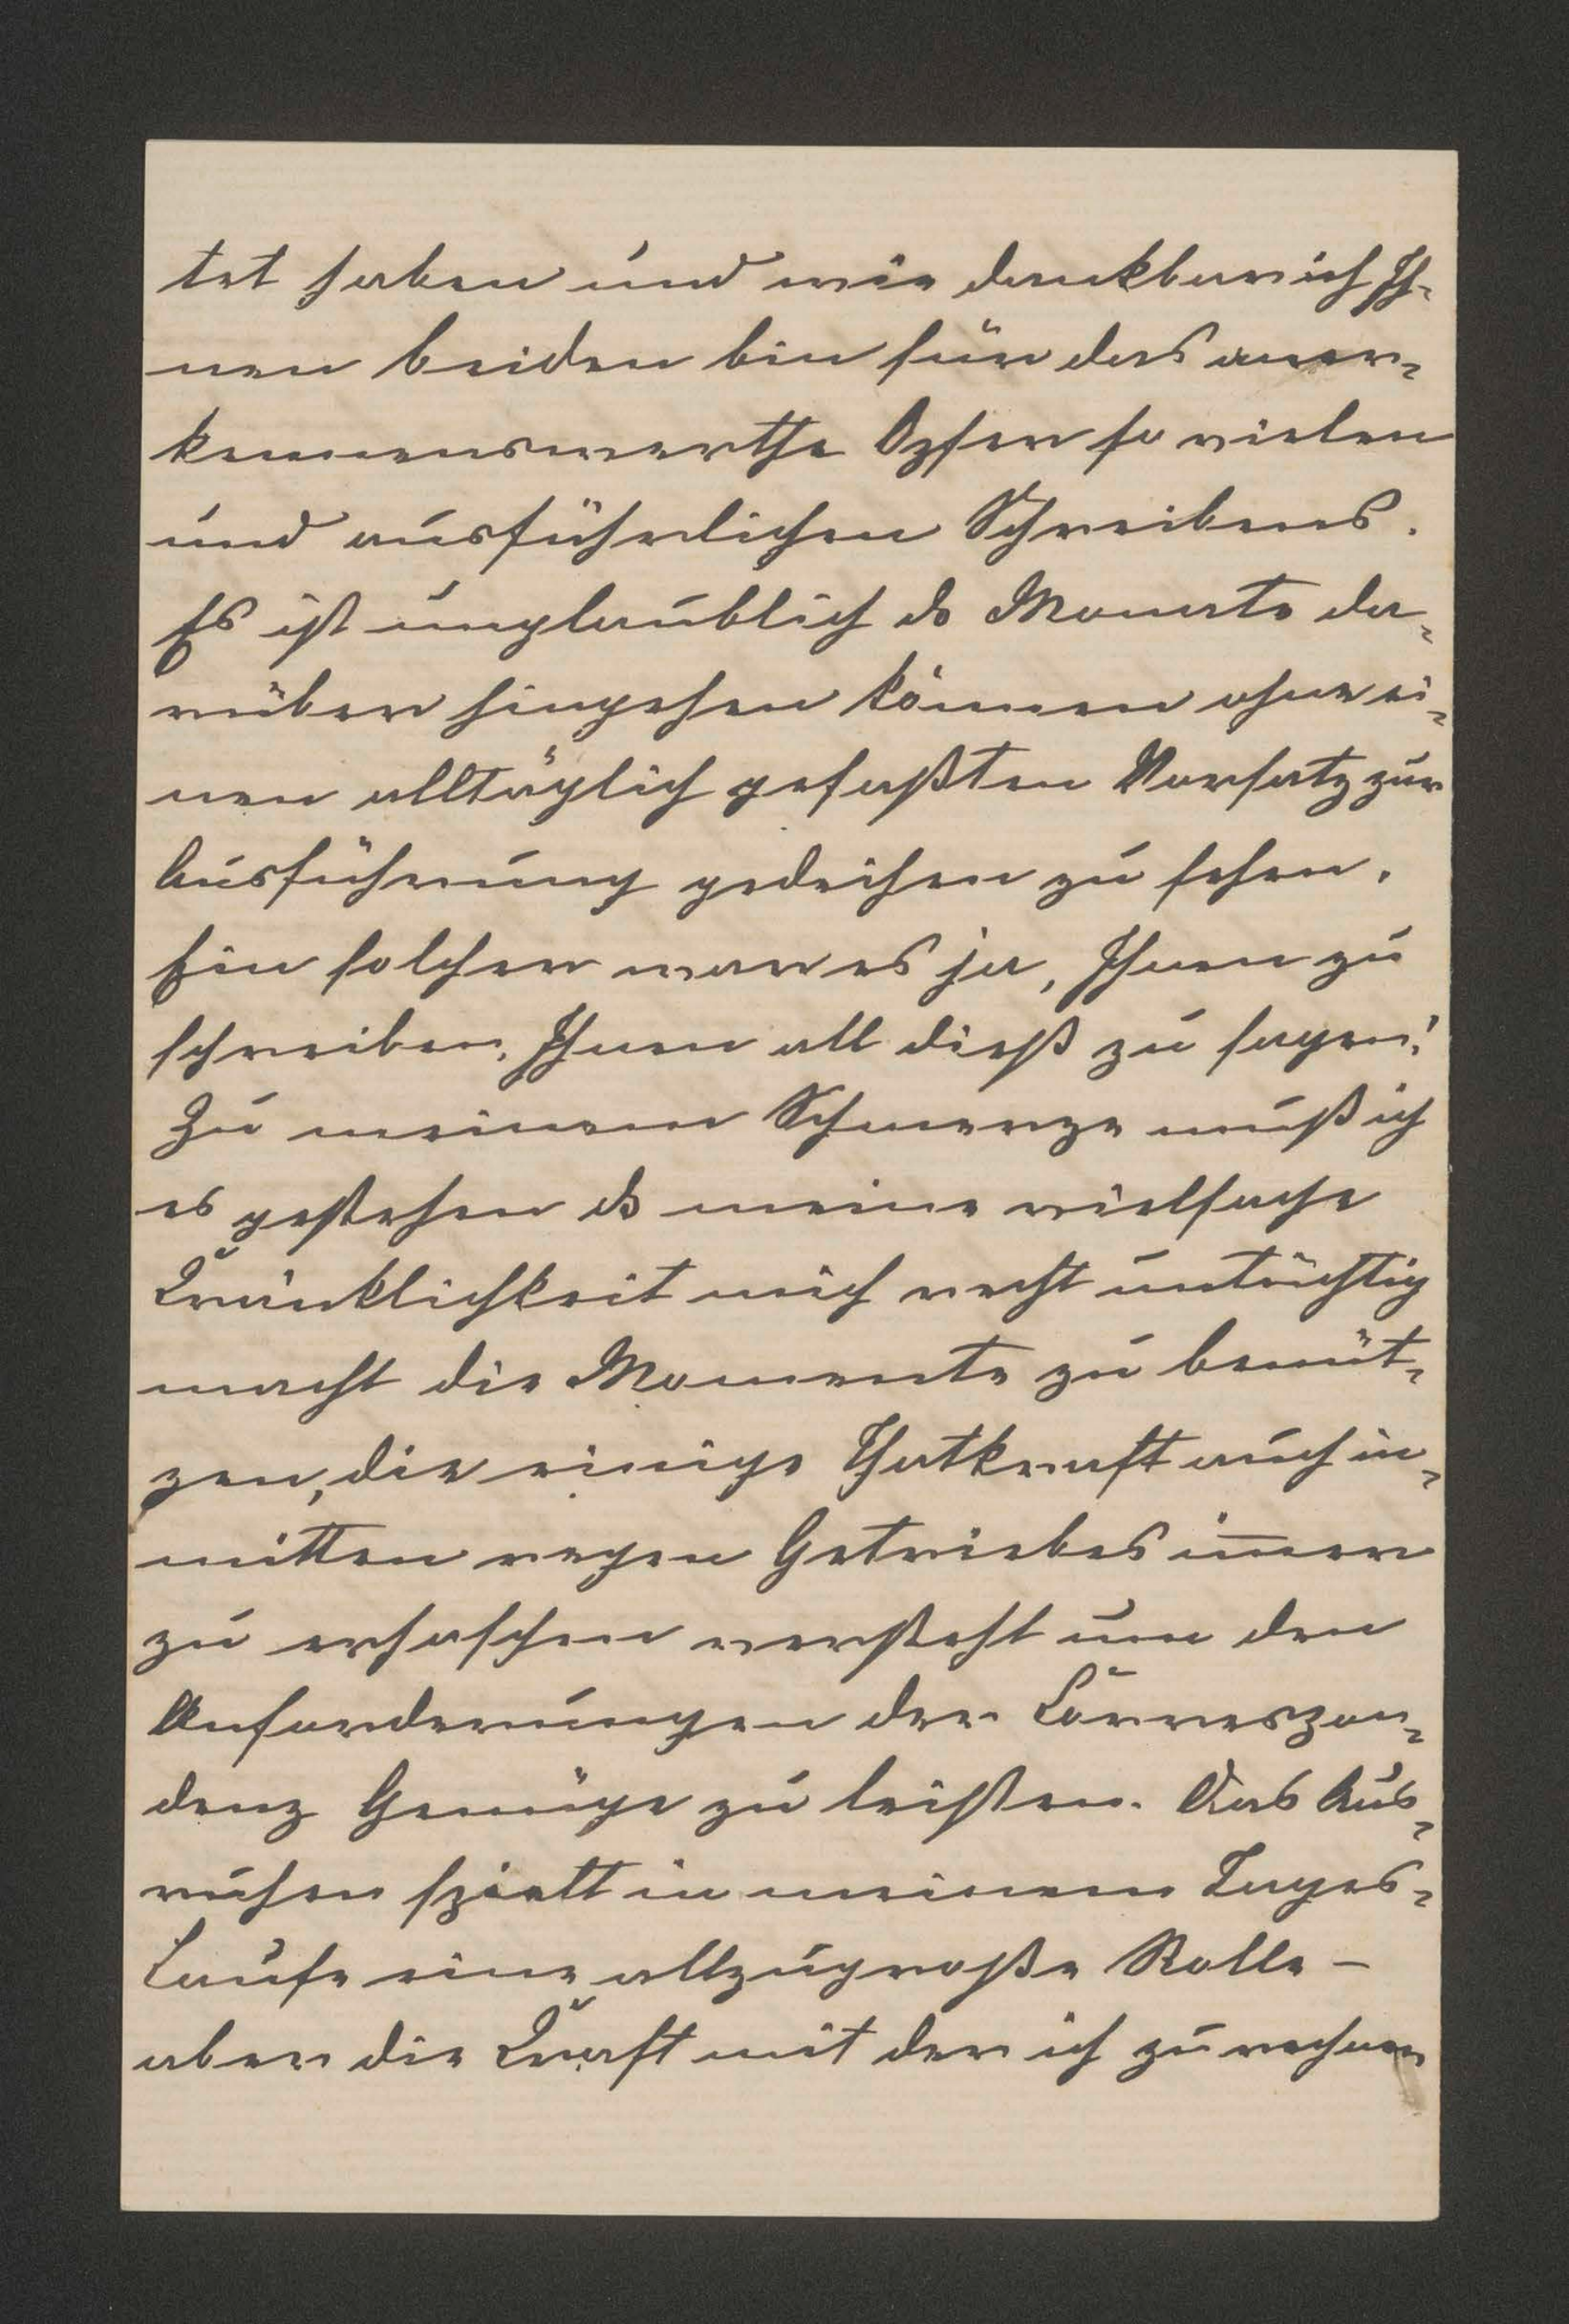 tet haben und wie dankbar ich Ih-
nen beiden bin für das aner-
kennenswerthe Opfer so vielen
und ausführlichen Schreibens.
Es ist unglaublich ds Monate da-
rüber hingehen können ohne ei-
nen alltäglich gefaßten Vorsatz zur
Ausführung gedeihen zu sehen.
Ein solcher war es ja, Ihnen zu
schreiben, Ihnen all dieß zu sagen!
Zu meinem Schmerze muß ich
es gestehen ds meine vielfache
Kränklichkeit mich recht untüchtig
macht die Momente zu benüt-
zen, die einige Thatkraft auch in-
mitten regen Getriebes im̅er
zu erhaschen versteht um den
Anforderungen der Corresp̄on-
denz Genüge zu leisten. Das Aus-
ruhen spielt in meinem Tages-
Laufe eine allzugroße Rolle –
aber die Kraft mit der ich zu rechnen